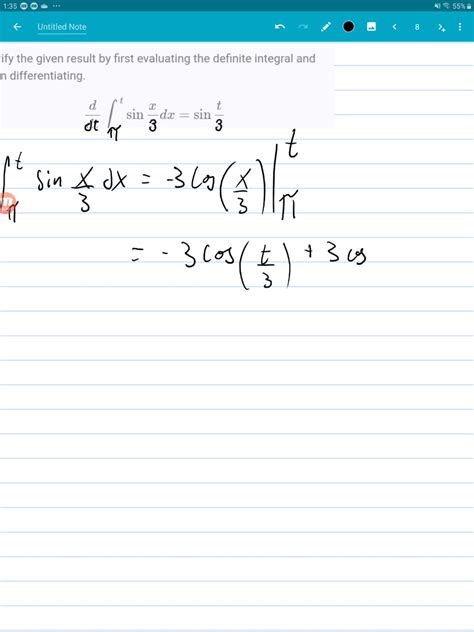 1:35 ... 55%
Untitled Note 8
ify the given result by first evaluating the definite integral and
n differentiating.
d/dt ∫_π^t sin x/3 dx = sin t/3
∫_π^t sin x/3 dx = -3 cos(x/3) |_π^t
= -3 cos(t/3) + 3 cos